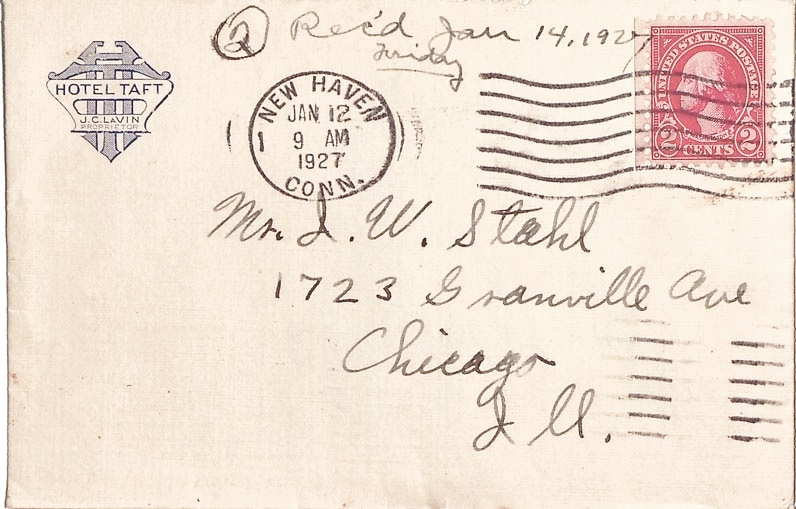 ② Rec'd Jan 14, 1927
Friday
HOTEL TAFT
J.C. LAVIN
PROPRIETOR
NEW HAVEN
JAN 12
1 9 AM
1927
CONN.
UNITED STATES POSTAGE
2 CENTS 2
Mr. J. W. Stahl
1723 Granville Ave
Chicago
Ill.